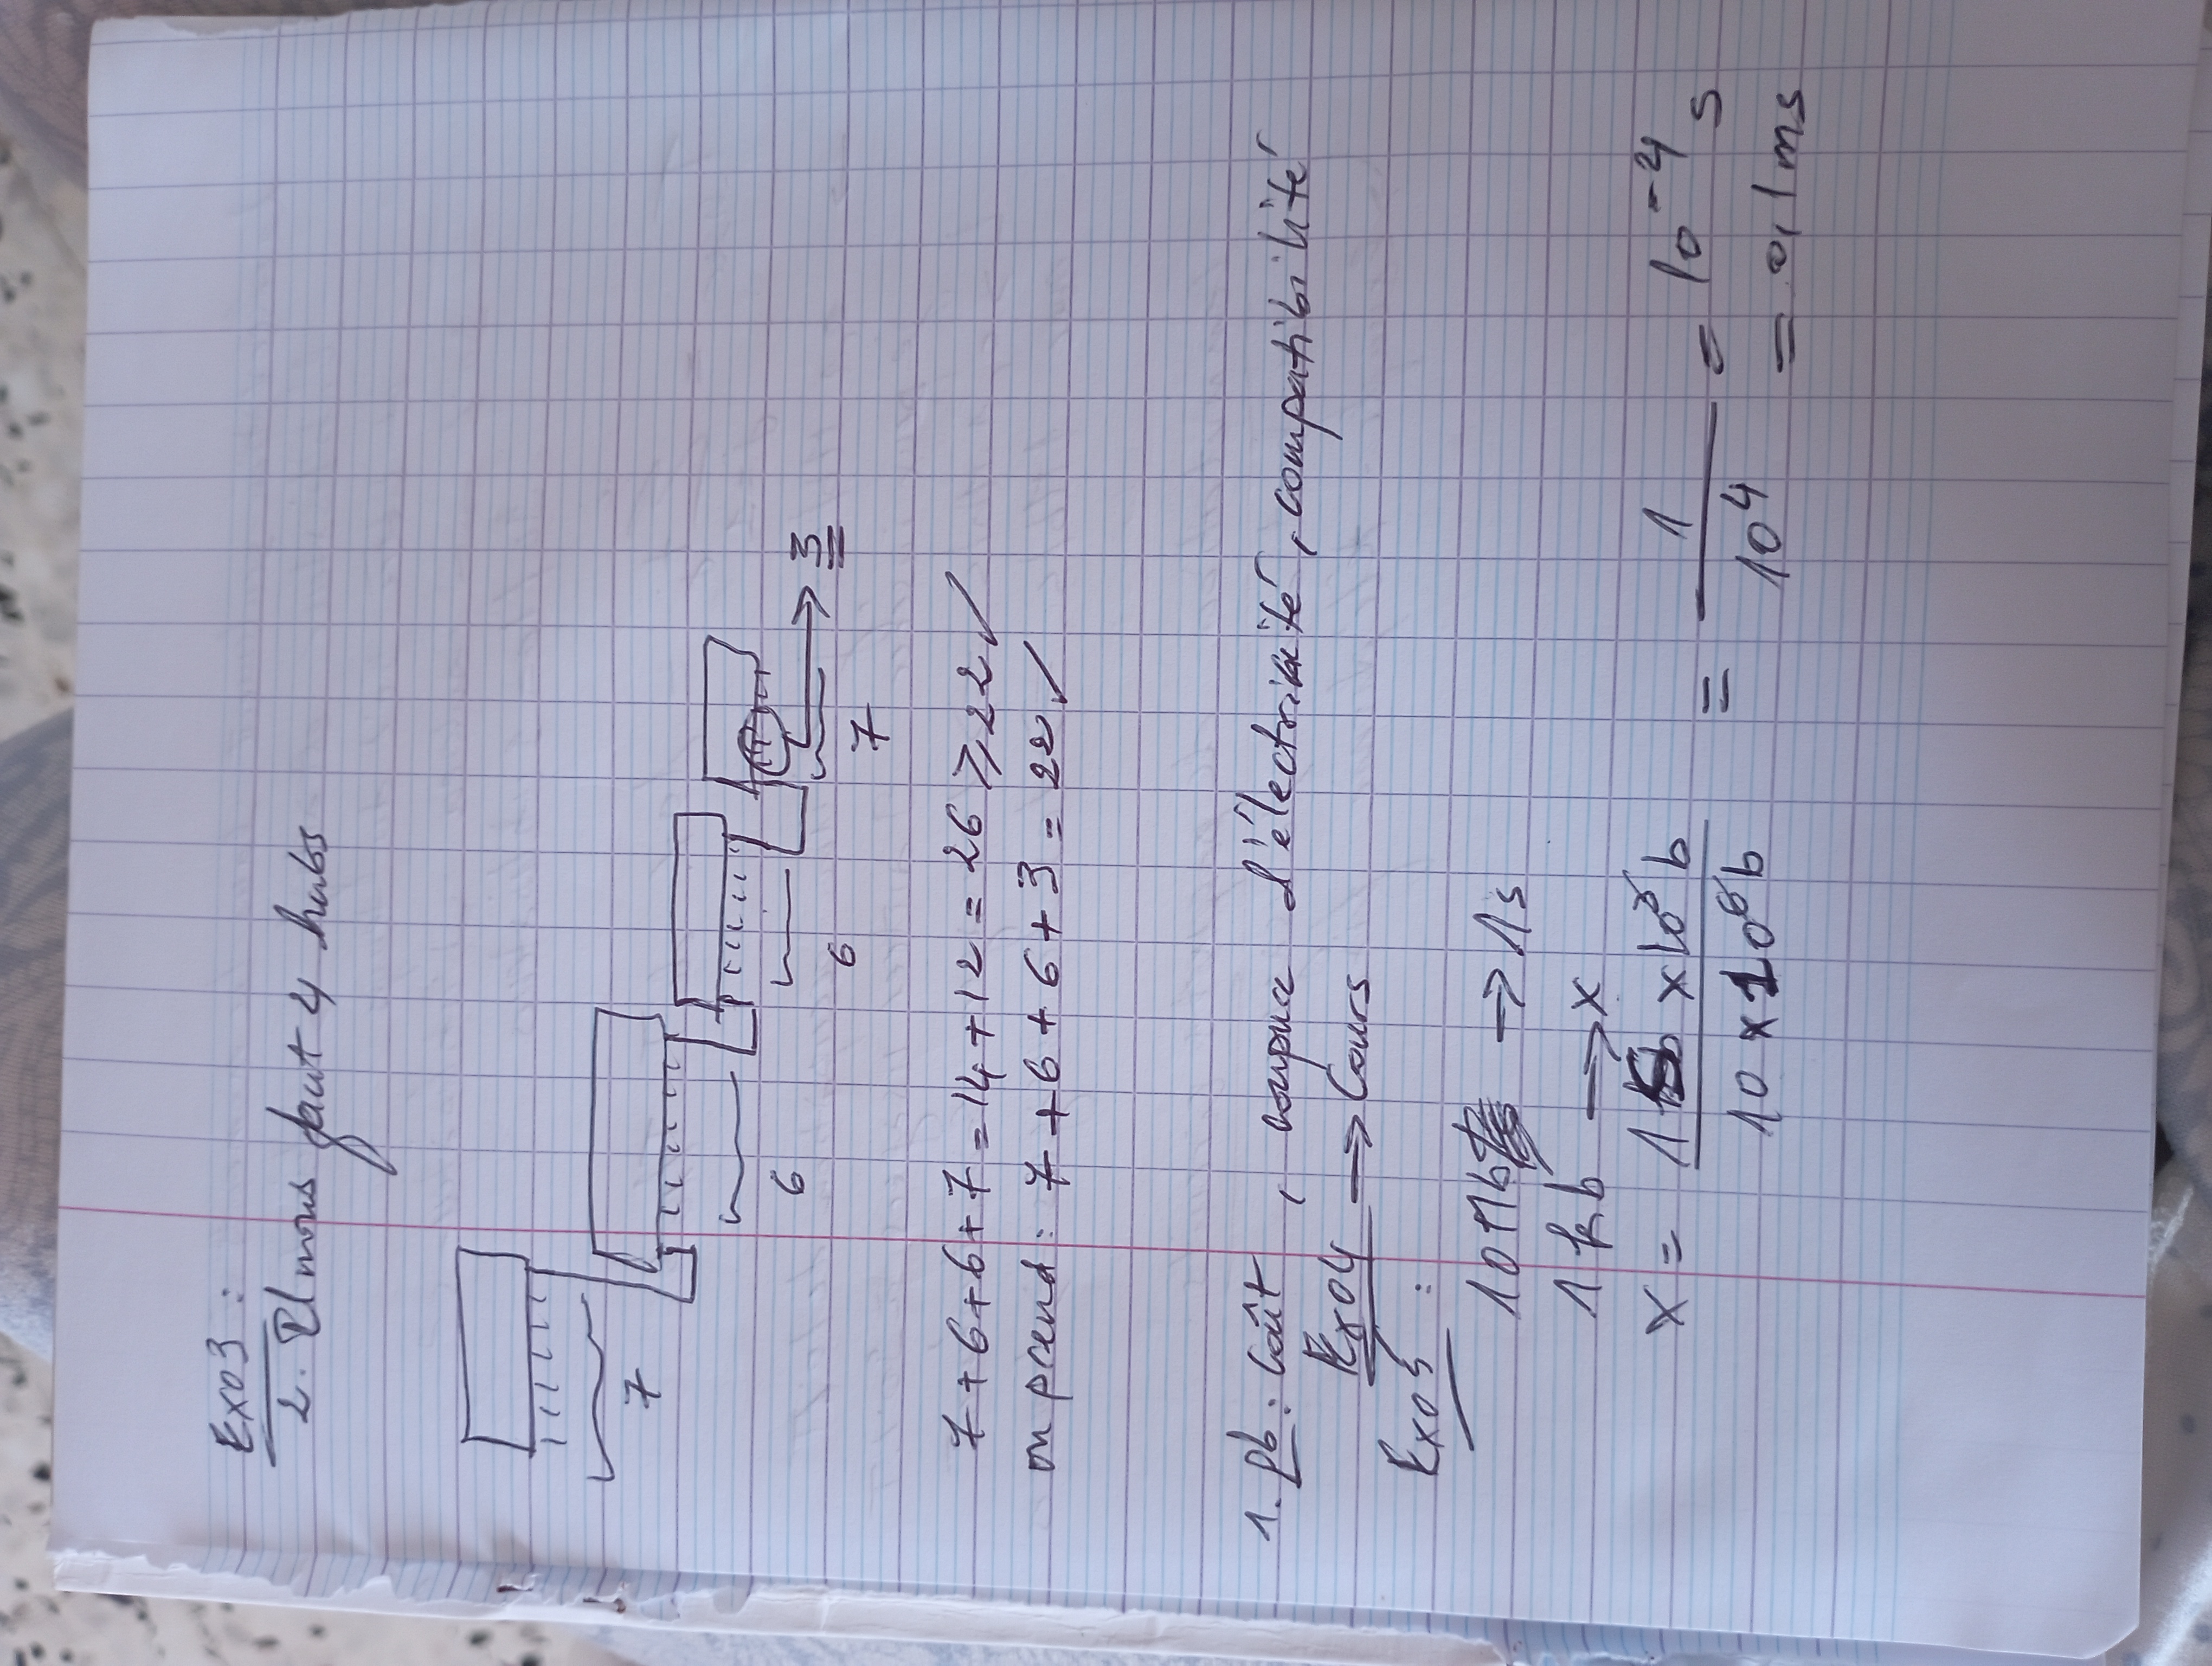 Exo3 :
2. Il nous faut 4 hubs
7
6
6
7
→ 3
7+6+6+7=14+12=26 ⩾22✓
on prend : 7+6+6+3=22✓
1. pb : Coût, coupure d'électricité, compatibilité
Exo4 → Cours
Exo5 :
10Mb → 1s
1kb → x
x = 1 x 10³ b / 10 x 10⁶ b = 1 / 10⁴ = 10⁻⁴ s
= 0,1 ms